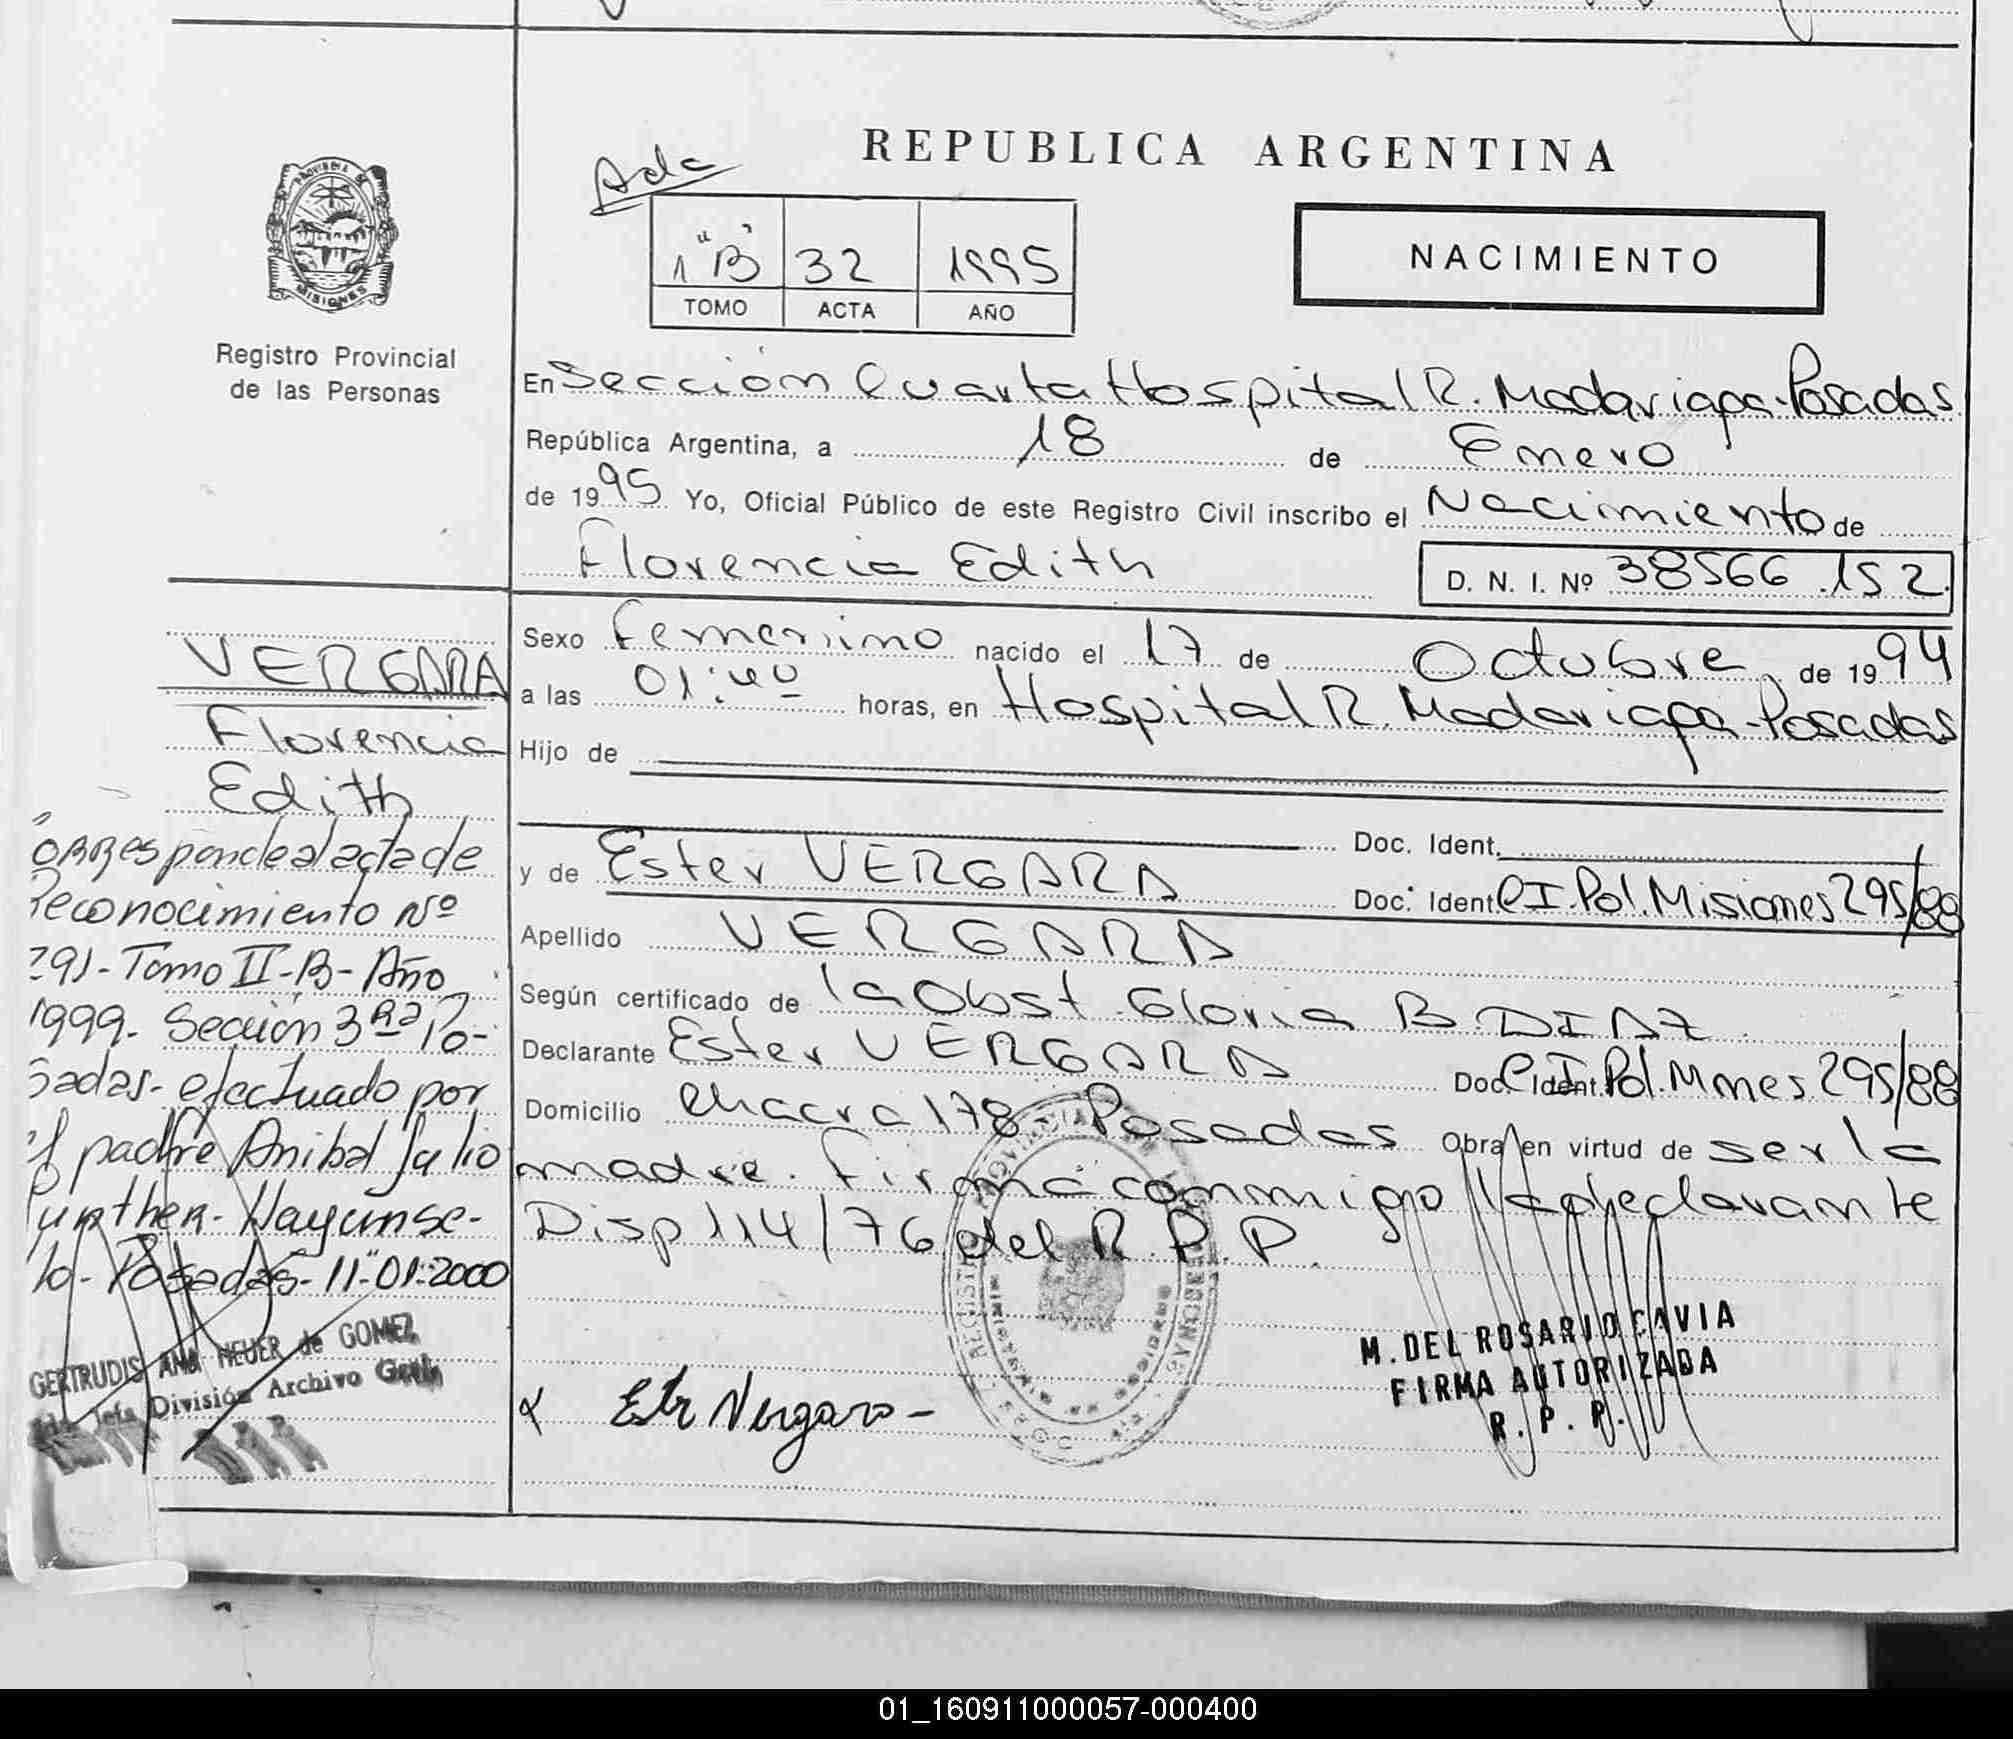 REPUBLICA ARGENTINA
1 "B" 32 1995
TOMO ACTA AÑO
NACIMIENTO
PROVINCIA DE
MISIONES
Registro Provincial
de las Personas
En Sección Cuarta Hospital R. Madariaga-Posadas
República Argentina, a 18 de Enero
de 1995 Yo, Oficial Público de este Registro Civil inscribo el Nacimiento de
Florencia Edith D. N. I. Nº 38566.152.
Sexo Femenino nacido el 17 de Octubre de 1994
a las 01:40 horas, en Hospital R. Madariaga-Posadas
Hijo de
Doc. Ident.
y de Ester VERGARA Doc. Ident. C.I.Pol.Misiones 295/88
Apellido VERGARA
Según certificado de la Obst. Gloria B. DIAZ
Declarante Ester VERGARA Doc. Ident. C.I.Pol.Mnes 295/88
Domicilio Chacra 178 - Posadas Obra en virtud de ser la
madre. Firma conmigo la declarante
Disp 114/76 del R.P.P.
Ester Vergara-
M. DEL ROSARIO CAVIA
FIRMA AUTORIZADA
R. P. P.
VERGARA
Florencia
Edith
Corresponde al acta de
Reconocimiento Nº
291-Tomo II-B-Año
1999- Sección 3ra Po-
sadas- efectuado por
el padre Anibal Julio
Posadas-11-01-2000
GERTRUDIS ANA NEUER de GOMEZ
Jefa División Archivo Gral.
01_160911000057-000400